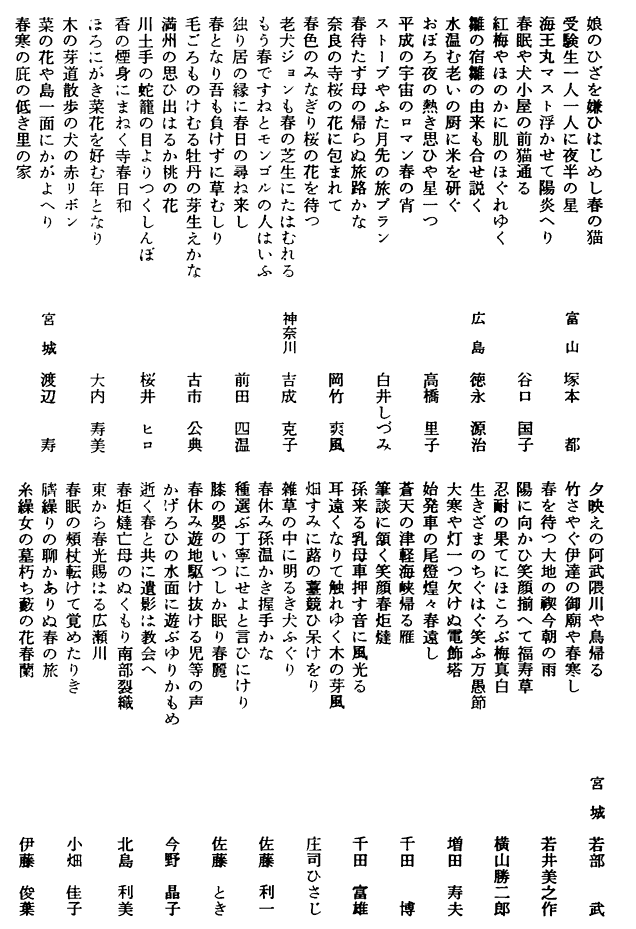 娘のひざを嫌ひはじめし春の猫
受験生一人一人に夜半の星 富山 塚本 都
海王丸マスト浮かせて陽炎へり
春眠や犬小屋の前猫通る 谷口 国子
紅梅やほのかに肌のほぐれゆく
雛の宿雛の由来も合せ説く 広島 徳永 源治
水温む老いの厨に米を研ぐ
おぼろ夜の熱き思ひや星一つ 高橋 里子
平成の宇宙のロマン春の宵
ストーブやふた月先の旅プラン 白井しづみ
春待たず母の帰らぬ旅路かな
奈良の寺桜の花に包まれて 岡竹 爽風
春色のみなぎり桜の花を待つ
老犬ジョンも春の芝生にたはむれる 神奈川 吉成 克子
もう春ですねとモンゴルの人はいふ
独り居の縁に春日の尋ね来し 前田 四温
春となり吾も負けずに草むしり
毛ごろものけむる牡丹の芽生えかな 古市 公典
満州の思ひ出はるか桃の花
川土手の蛇籠の目よりつくしんぼ 桜井 ヒロ
香の煙身にまねく寺春日和
ほろにがき菜花を好む年となり 大内 寿美
木の芽道散歩の犬の赤リボン
菜の花や島一面にかがよへり 宮城 渡辺 寿
春寒の庇の低き里の家
夕映えの阿武隈川や鳥帰る 宮城 若部 武
竹さやぐ伊達の御廟や春寒し
春を待つ大地の禊今朝の雨 若井美之作
陽に向かひ笑顔揃へて福寿草
忍耐の果てにほころぶ梅真白 横山勝二郎
生きざまのちぐはぐ笑ふ万愚節
大寒や灯一つ欠けぬ電飾塔 増田 寿夫
始発車の尾燈煌々春遠し
蒼天の津軽海峡帰る雁 千田 博
筆談に頷く笑顔春炬燵
孫来る乳母車押す音に風光る 千田 富雄
耳遠くなりて触れゆく木の芽風
畑すみに蕗の薹競ひ呆けをり 庄司ひさじ
雑草の中に明るき犬ふぐり
春休み孫温かき握手かな 佐藤 利一
種選ぶ丁寧にせよと言ひにけり
膝の嬰のいつしか眠り春麗 佐藤 とき
春休み遊地駆け抜ける児等の声
かげろひの水面に遊ぶゆりかもめ 今野 晶子
逝く春と共に遺影は教会へ
春炬燵亡母のぬくもり南部裂織 北島 利美
東から春光賜はる広瀬川
春眠の頬杖転けて覚めたりき 小畑 佳子
臍繰りの聊かありぬ春の旅
糸繰女の墓朽ち藪の花春蘭 伊藤 俊葉